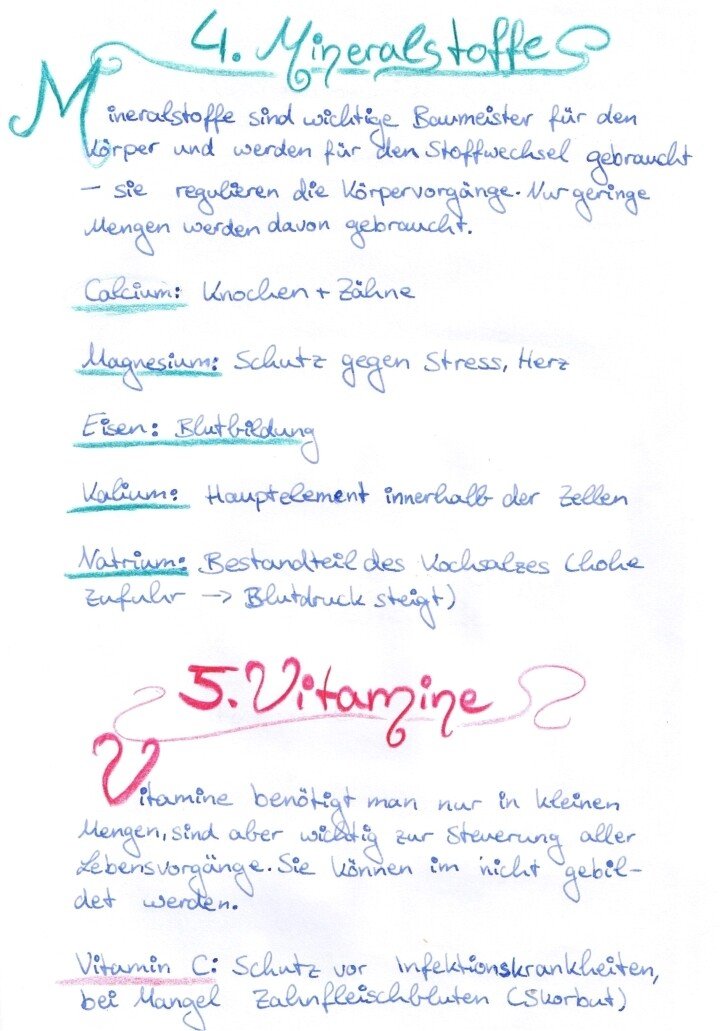 4. Mineralstoffe
Mineralstoffe sind wichtige Baumeister für den
Körper und werden für den Stoffwechsel gebraucht
– sie regulieren die Körpervorgänge. Nur geringe
Mengen werden davon gebraucht.
Calcium: Knochen + Zähne
Magnesium: Schutz gegen Stress, Herz
Eisen: Blutbildung
Kalium: Hauptelement innerhalb der Zellen
Natrium: Bestandteil des Kochsalzes (hohe
Zufuhr → Blutdruck steigt)
5. Vitamine
Vitamine benötigt man nur in kleinen
Mengen, sind aber wichtig zur Steuerung aller
Lebensvorgänge. Sie können im nicht gebil-
det werden.
Vitamin C: Schutz vor Infektionskrankheiten,
bei Mangel Zahnfleischbluten (Skorbut)